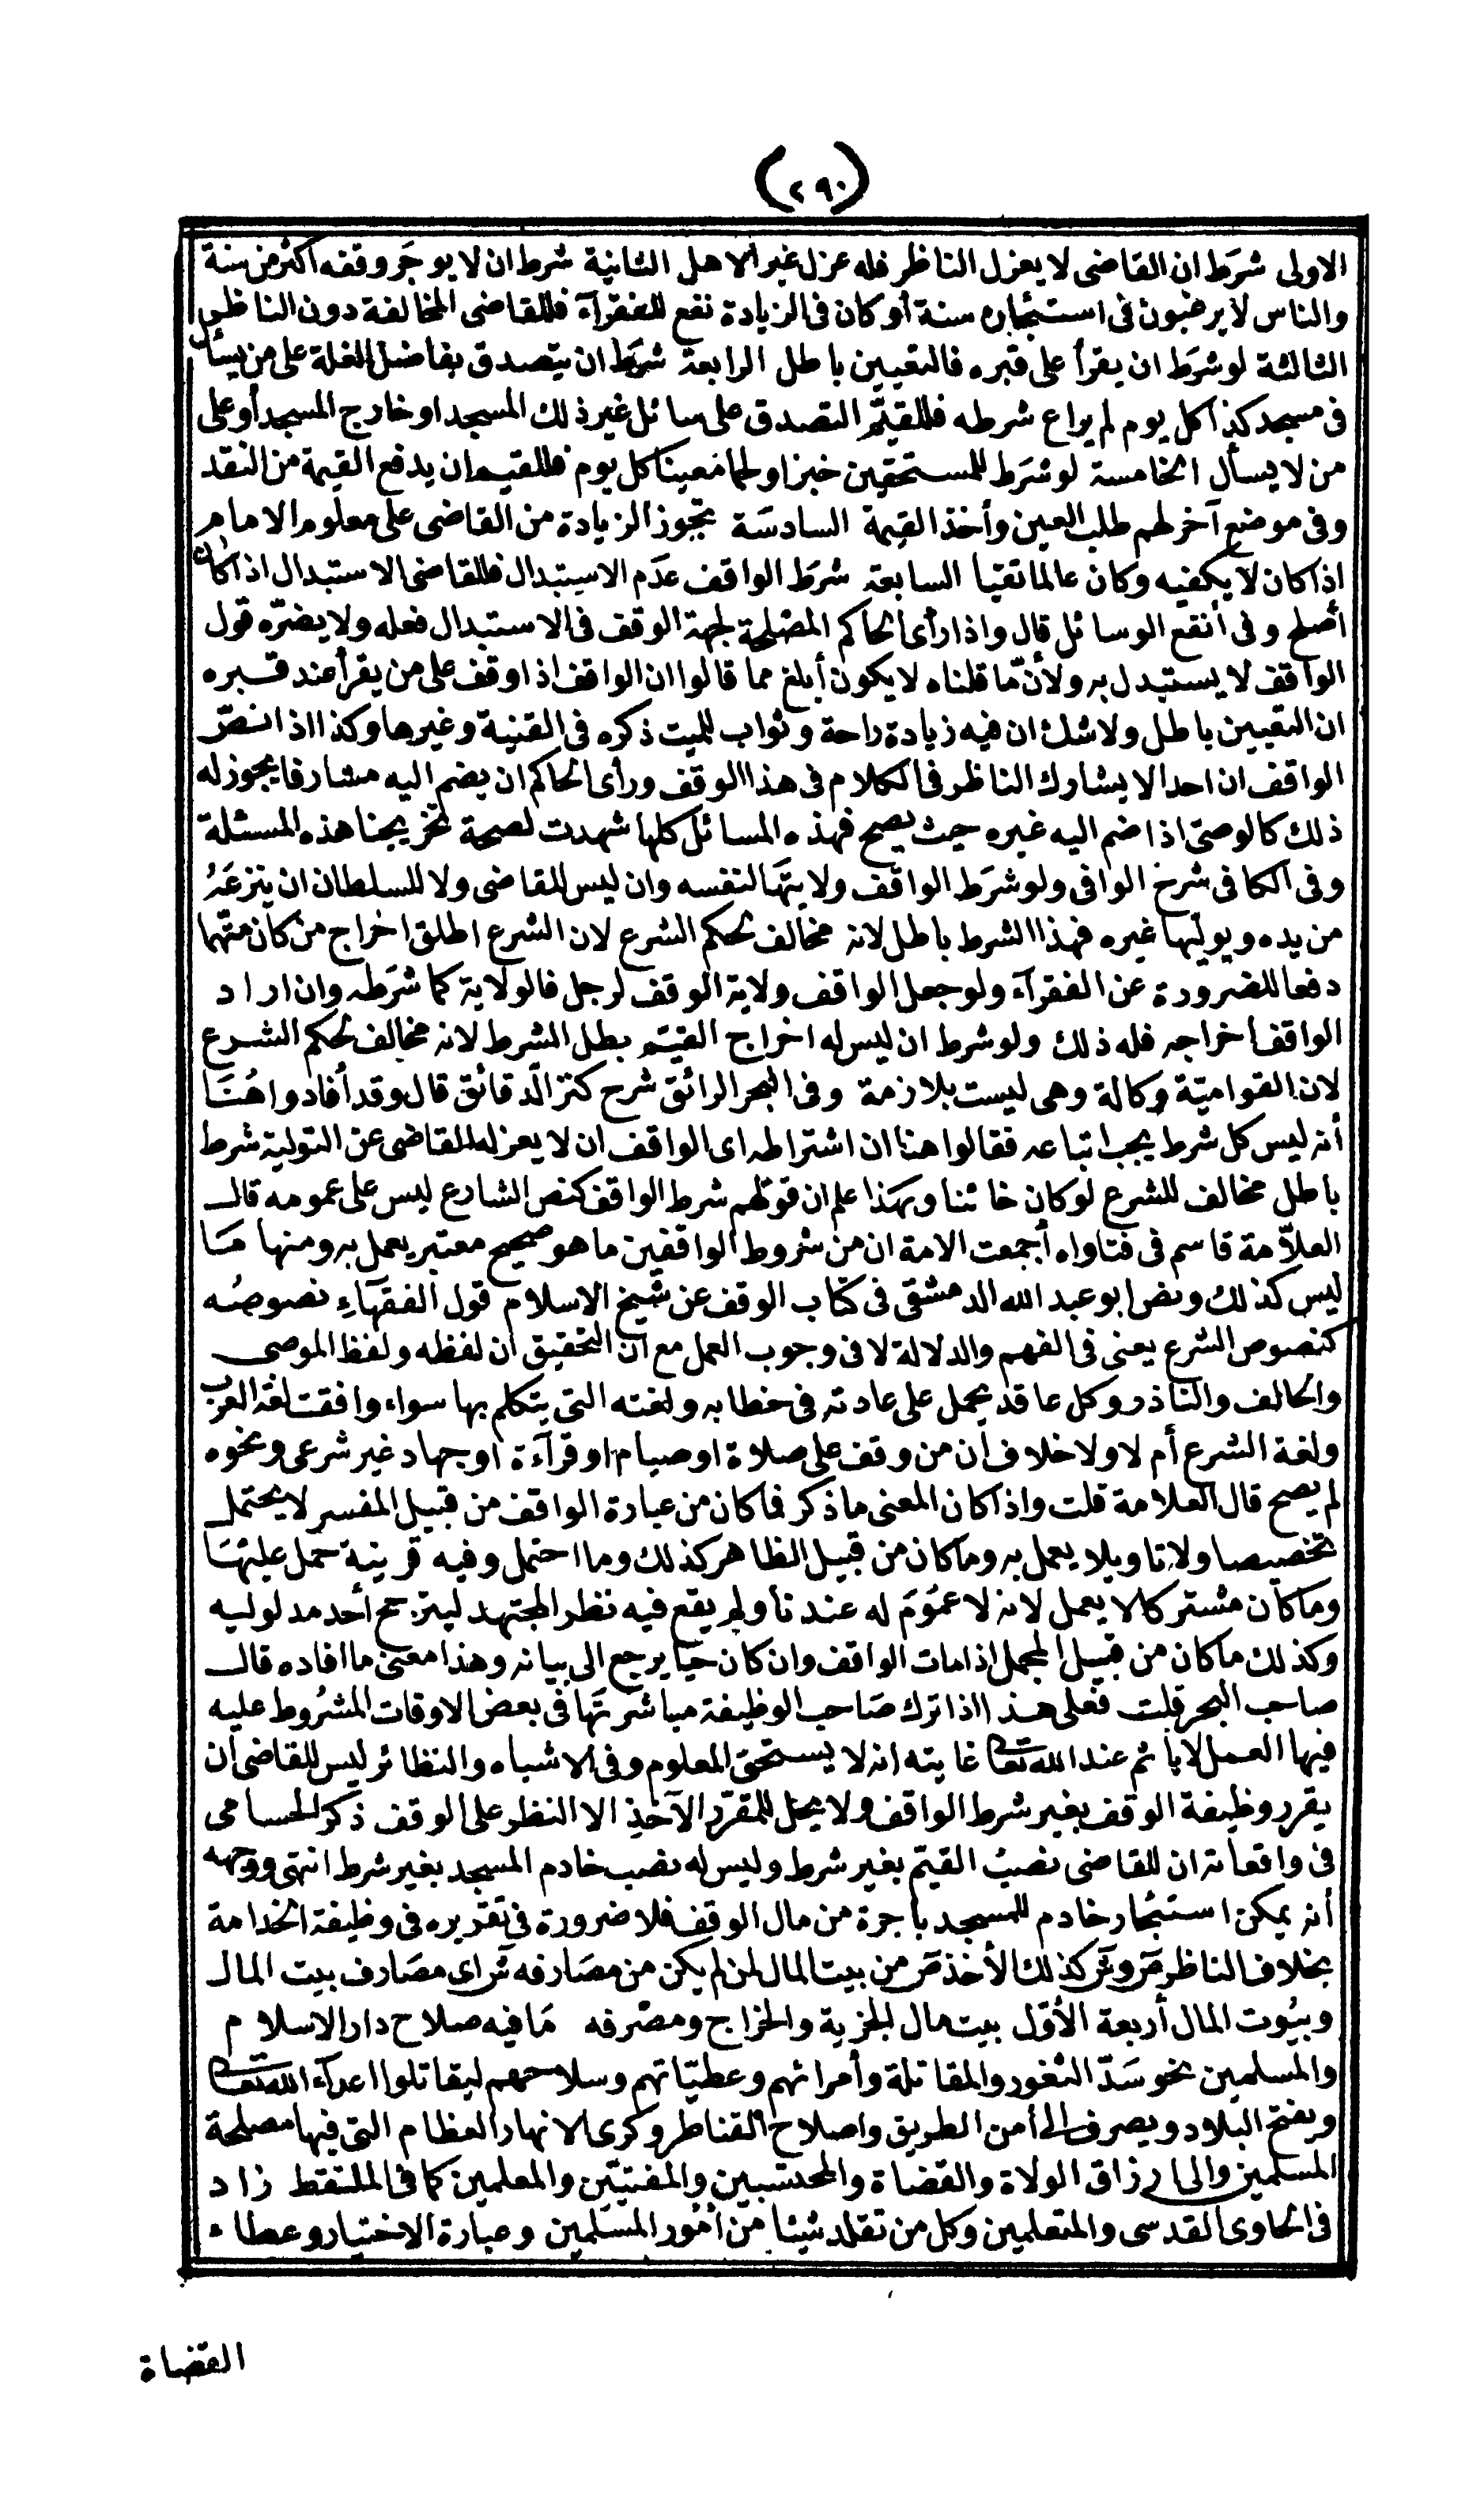 (٢٩٠)
الاولى شرط ان القاضى لا يعزل الناظر فله عزل غير الاهل الثانية شرط ان لا يوجر وقفه اكثر من سنة
والناس لا يرغبون فى استئجاره سنة أو كان فى الزيادة نفع للفقرآء فللقاضى المخالفة دون الناظر
الثالثة لو شرط ان يقرأ على قبره فالتعيين باطل الرابعة شرط ان يتصدق بفاضل الغلة على من يسأل
فى مسجد كذا كل يوم لم يراع شرطه فللقيّم التصدق على سائل غير ذلك المسجد او خارج المسجد أو على
من لا يسأل الخامسة لو شرط للمستحقين خبزا ولحما معينا كل يوم فللقيم ان يدفع القيمة من النقد
وفى موضع آخر لهم طلب العين وأخذ القيمة السادسة تجوز الزيادة من القاضى على معلوم الامام
اذا كان لا يكفيه وكان عالما تقيا السابعة شرط الواقف عدم الاستبدال فللقاضى الاستبدال اذا كان
أصلح وفى أنفع الوسائل قال واذا رأى الحاكم المصلحة لجهة الوقف فى الاستبدال فعله ولا يضرّه قول
الواقف لا يستبدل به ولأنّ ما قلناه لا يكون أبلغ مما قالوا ان الواقف اذا وقف على من يقرأ عند قبره
ان التعيين باطل ولا شك ان فيه زيادة راحة وثواب للميت ذكره فى القنية وغيرها وكذا اذا نصّ
الواقف ان احدا لا يشارك الناظر فى الكلام فى هذا الوقف ورأى الحاكم ان يضم اليه مشارفا يجوز له
ذلك كالوصىّ اذا ضم اليه غيره حيث يصح فهذه المسائل كلها شهدت لصحة تخريجنا هذه المسئلة
وفى الكافى شرح الوافى ولو شرط الواقف ولايتها لنفسه وان ليس للقاضى ولا للسلطان ان ينزعه
من يده ويوليها غيره فهذا الشرط باطل لانه مخالف لحكم الشرع لان الشرع اطلق اخراج من كان متهما
دفعا للضرورة عن الفقرآء ولو جعل الواقف ولاية الوقف لرجل فالولاية كما شرطه وان اراد
الواقف اخراجه فله ذلك ولو شرط ان ليس له اخراج القيّم بطل الشرط لانه مخالف لحكم الشرع
لان القواميّة وكالة وهى ليست بلازمة وفى البحر الرائق شرح كنز الدّقائق قال وقد أفادوا هُنَا
أنه ليس كل شرط يجب اتباعه فقالوا هنا ان اشتراطه اى الواقف ان لا يعزله القاضى عن التولية شرط
باطل مخالف للشرع لو كان خائنا وبهذا علم ان قولهم شرط الواقف كنص الشارع ليس على عمومه قال
العلاّمة قاسم فى فتاواه أجمعت الامة ان من شروط الواقفين ما هو صحيح معتبر يعمل به ومنها مَا
ليس كذلك ونص ابو عبد الله الدمشقى فى كتاب الوقف عن شيخ الاسلام قول الفقهآءِ نصوصُه
كنصوص الشرع يعنى فى الفهم والدلالة لا فى وجوب العمل مع ان التحقيق ان لفظه ولفظ الموصى
والحالف والناذر وكل عاقد يحمل على عادته فى خطابه ولغته التى يتكلم بها سواء وافقت لغة العرب
ولغة الشرع أم لا ولا خلاف ان من وقف على صلاة او صيام او قرآءة او جهاد غير شرعى ونحوه
لم يصح قال العلامة قلت واذا كان المعنى ما ذكر فما كان من عبارة الواقف من قبيل المفسر لا يحتمل
تخصيصا ولا تاويلا يعمل به وما كان من قبيل الظاهر كذلك وما احتمل وفيه قرينة حمل عليهَا
وما كان مشتركا لا يعمل لانه لا عمُومَ له عندنا ولم يقع فيه نظر المجتهد ليترجح أحد مدلوليه
وكذلك ما كان من قبيل المجمل اذا مات الواقف وان كان حيّا يرجع الى بيانه وهذا معنى ما افاده قال
صاحب البحر قلت فعلى هذا اذا ترك صَاحب الوظيفة مباشرتَها فى بعض الاوقات المشرُوط عليه
فيها العمل لا يا ثم عند الله تعا غايته انه لا يستحق المعلوم وفى الاشباه والنظائر ليس للقاضى أن
يقرر وظيفة الوقف بغير شرط الواقف ولا يحل للمقرّر الآخذِ الا النظر على الوقف ذكر الحسامى
فى واقعاته ان للقاضى نصبُ القيّم بغير شرط وليس له نصب خادم المسجد بغير شرط انتهى ووجهه
أنه يمكن استئجار خادم للمسجد باجرة من مال الوقف فلا ضرورة فى تقريره فى وظيفة الخدامة
بخلاف الناظر كذلك الأخذ من بيت المال لمن لم يكن من مصَارفه اى مصَارف بيت المال
وبيُوت المال أربعة الأوّل بيت مال الجزية والخراج ومصْرفه مَا فيه صلاح دار الاسلام
والمسلمين نحو سَدّ الثغور والمقاتلة وأمرائهم وعطيّاتهم وسلاحهم ليقاتلوا اعدآء الله تعا
وبفتح البلاد ويصرف الى أمن الطريق واصلاح القناطر وكرى الانهار العظام التى فيها مصلحة
المسلمين والى ارزاق الولاة والقضاة والمحتسبين والمفتيّين والمعلمين كما فى الملتقط زاد
فى الحاوى القدسى والمتعلمين وكل من تقلد شيئا من أمُور المسلمين وعبارة الاختيار وعطاء
القضاة